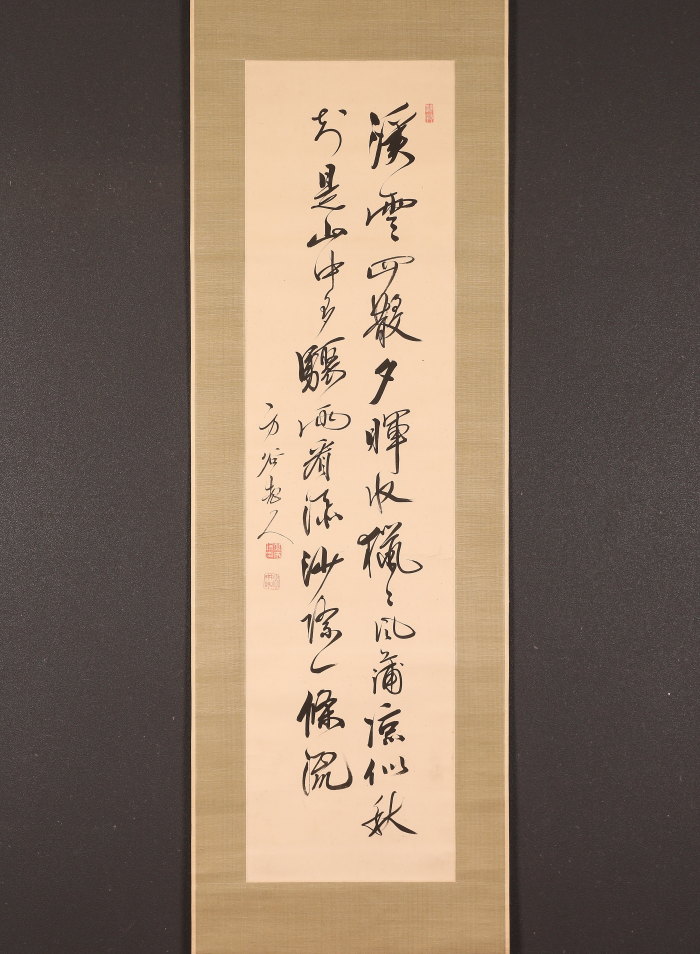 溪雲四散夕暉收獵々風蒲凉似秋
知是山中多驟雨看添沙際一條流
方谷老人